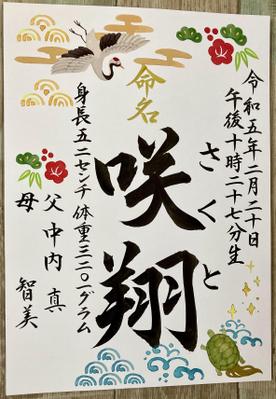 令和五年二月二十日
午後十時二十七分生
さくと
命名
咲翔
身長五二センチ 体重三三〇一グラム
父 中内 真
母 智美